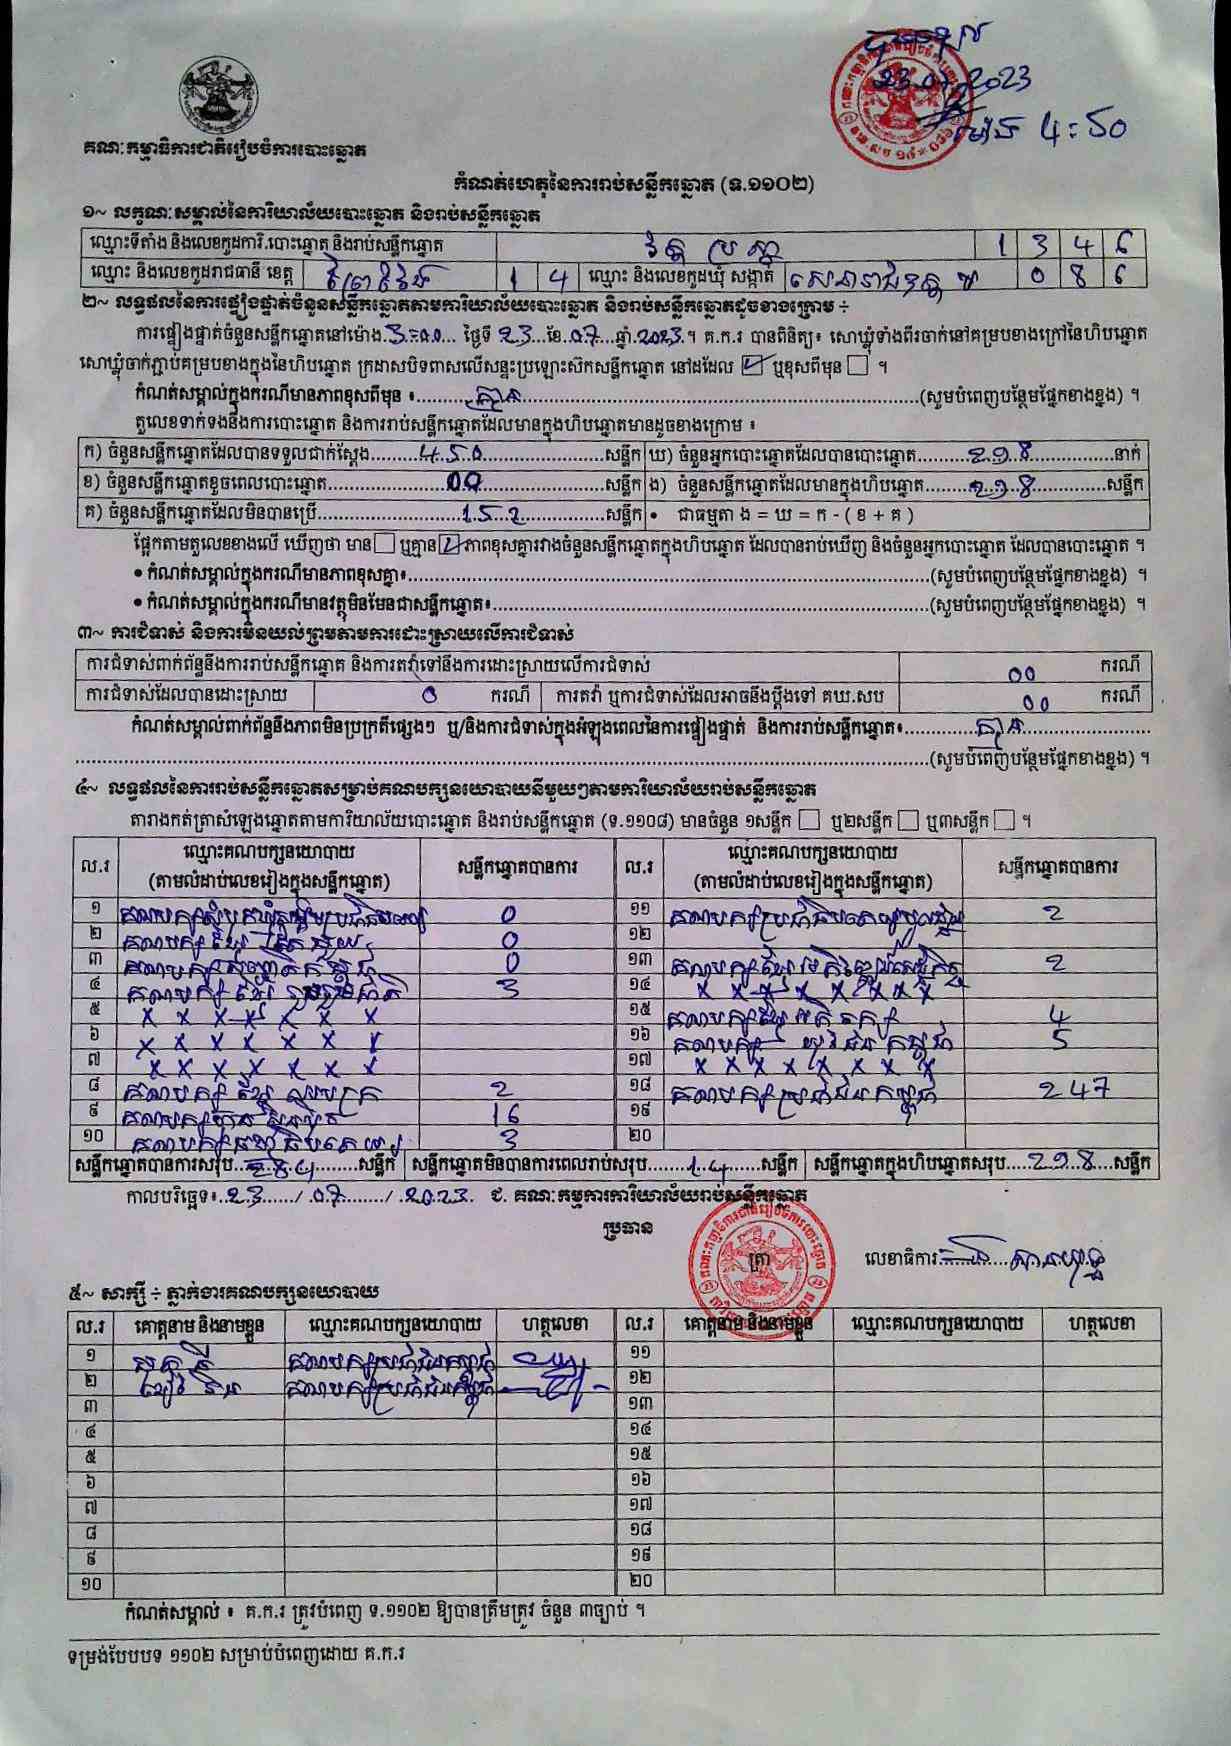 23.07.2023
ម៉ោង 4:50
គណៈកម្មាធិការជាតិរៀបចំការបោះឆ្នោត
កំណត់ហេតុនៃការរាប់សន្លឹកឆ្នោត (ទ.១១០២)
១~ លក្ខណៈសម្គាល់នៃការិយាល័យបោះឆ្នោត និងរាប់សន្លឹកឆ្នោត
ឈ្មោះទីតាំង និងលេខកូដការិ.បោះឆ្នោត និងរាប់សន្លឹកឆ្នោត វត្ត 1 3 4 6
ឈ្មោះ និងលេខកូដរាជធានី ខេត្ត ព្រៃវែង 1 4 ឈ្មោះ និងលេខកូដឃុំ សង្កាត់ 0 8 6
២~ លទ្ធផលនៃការផ្ទៀងផ្ទាត់ចំនួនសន្លឹកឆ្នោតតាមការិយាល័យបោះឆ្នោត និងរាប់សន្លឹកឆ្នោតដូចខាងក្រោម ÷
ការផ្ទៀងផ្ទាត់ចំនួនសន្លឹកឆ្នោតនៅម៉ោង 3:00 ថ្ងៃទី 23 ខែ 07 ឆ្នាំ 2023 ។ គ.ក.រ បានពិនិត្យ៖ សោឃ្លុំទាំងពីរចាក់នៅគម្របខាងក្រៅនៃហិបឆ្នោត
សោឃ្លុំចាក់ភ្ជាប់គម្របខាងក្នុងនៃហិបឆ្នោត ក្រដាសបិទពាសលើសន្ទះប្រឡោះស៊កសន្លឹកឆ្នោត នៅដដែល ☑ ឬខុសពីមុន ☐ ។
កំណត់សម្គាល់ក្នុងករណីមានភាពខុសពីមុន ៖ គ្មាន (សូមបំពេញបន្ថែមផ្នែកខាងខ្នង) ។
តួលេខទាក់ទងនឹងការបោះឆ្នោត និងការរាប់សន្លឹកឆ្នោតដែលមានក្នុងហិបឆ្នោតមានដូចខាងក្រោម ៖
ក) ចំនួនសន្លឹកឆ្នោតដែលបានទទួលជាក់ស្តែង 450 សន្លឹក ឃ) ចំនួនអ្នកបោះឆ្នោតដែលបានបោះឆ្នោត 298 នាក់
ខ) ចំនួនសន្លឹកឆ្នោតខូចពេលបោះឆ្នោត 00 សន្លឹក ង) ចំនួនសន្លឹកឆ្នោតដែលមានក្នុងហិបឆ្នោត 298 សន្លឹក
គ) ចំនួនសន្លឹកឆ្នោតដែលមិនបានប្រើ 152 សន្លឹក • ជាធម្មតា ង = ឃ = ក - ( ខ + គ )
ផ្អែកតាមតួលេខខាងលើ ឃើញថា មាន ☐ ឬគ្មាន ☑ ភាពខុសគ្នារវាងចំនួនសន្លឹកឆ្នោតក្នុងហិបឆ្នោត ដែលបានរាប់ឃើញ និងចំនួនអ្នកបោះឆ្នោត ដែលបានបោះឆ្នោត ។
• កំណត់សម្គាល់ក្នុងករណីមានភាពខុសគ្នា៖ (សូមបំពេញបន្ថែមផ្នែកខាងខ្នង) ។
• កំណត់សម្គាល់ក្នុងករណីមានវត្ថុមិនមែនជាសន្លឹកឆ្នោត៖ (សូមបំពេញបន្ថែមផ្នែកខាងខ្នង) ។
៣~ ការជំទាស់ និងការមិនយល់ព្រមតាមការដោះស្រាយលើការជំទាស់
ការជំទាស់ពាក់ព័ន្ធនឹងការរាប់សន្លឹកឆ្នោត និងការតវ៉ាទៅនឹងការដោះស្រាយលើការជំទាស់ 00 ករណី
ការជំទាស់ដែលបានដោះស្រាយ 0 ករណី ការតវ៉ា ឬការជំទាស់ដែលអាចនឹងប្តឹងទៅ គឃ.សប 00 ករណី
កំណត់សម្គាល់ពាក់ព័ន្ធនឹងភាពមិនប្រក្រតីផ្សេងៗ ឬ/និងការជំទាស់ក្នុងអំឡុងពេលនៃការផ្ទៀងផ្ទាត់ និងការរាប់សន្លឹកឆ្នោត៖ គ្មាន
(សូមបំពេញបន្ថែមផ្នែកខាងខ្នង) ។
៤~ លទ្ធផលនៃការរាប់សន្លឹកឆ្នោតសម្រាប់គណបក្សនយោបាយនីមួយៗតាមការិយាល័យរាប់សន្លឹកឆ្នោត
តារាងកត់ត្រាសំឡេងឆ្នោតតាមការិយាល័យបោះឆ្នោត និងរាប់សន្លឹកឆ្នោត (ទ.១១០៨) មានចំនួន ១សន្លឹក ☐ ឬ២សន្លឹក ☐ ឬ៣សន្លឹក ☐ ។
ល.រ ឈ្មោះគណបក្សនយោបាយ (តាមលំដាប់លេខរៀងក្នុងសន្លឹកឆ្នោត) សន្លឹកឆ្នោតបានការ ល.រ ឈ្មោះគណបក្សនយោបាយ (តាមលំដាប់លេខរៀងក្នុងសន្លឹកឆ្នោត) សន្លឹកឆ្នោតបានការ
១ គណបក្ស 0 ១១ គណបក្សប្រជាធិបតេយ្យមូលដ្ឋាន 2
២ គណបក្ស ខ្មែរ 0 ១២
៣ គណបក្ស 0 ១៣ គណបក្សខ្មែរ 2
៤ គណបក្ស ខ្មែរ រួបរួមជាតិ 3 ១៤ x x x x x x x
៥ x x x x x x x ១៥ គណបក្សខ្មែរ 4
៦ x x x x x x x ១៦ គណបក្ស យុវជន កម្ពុជា 5
៧ x x x x x x x ១៧ x x x x x x x
៨ គណបក្ស ខ្មែរ 2 ១៨ គណបក្សប្រជាជនកម្ពុជា 247
៩ គណបក្សហ៊្វុនស៊ិនប៉ិច 16 ១៩
១០ គណបក្ស ប្រជាធិបតេយ្យ 3 ២០
សន្លឹកឆ្នោតបានការសរុប 284 សន្លឹក សន្លឹកឆ្នោតមិនបានការពេលរាប់សរុប 14 សន្លឹក សន្លឹកឆ្នោតក្នុងហិបឆ្នោតសរុប 298 សន្លឹក
កាលបរិច្ឆេទ៖ 23 / 07 / 2023 ជ. គណៈកម្មការការិយាល័យរាប់សន្លឹកឆ្នោត
ប្រធាន
ត្រា
លេខាធិការ
៥~ សាក្សី ÷ ភ្នាក់ងារគណបក្សនយោបាយ
ល.រ គោត្តនាម និងនាមខ្លួន ឈ្មោះគណបក្សនយោបាយ ហត្ថលេខា ល.រ គោត្តនាម និងនាមខ្លួន ឈ្មោះគណបក្សនយោបាយ ហត្ថលេខា
១ គណបក្សប្រជាជនកម្ពុជា ១១
២ គណបក្សប្រជាជនកម្ពុជា ១២
៣ ១៣
៤ ១៤
៥ ១៥
៦ ១៦
៧ ១៧
៨ ១៨
៩ ១៩
១០ ២០
កំណត់សម្គាល់ ៖ គ.ក.រ ត្រូវបំពេញ ទ.១១០២ ឱ្យបានត្រឹមត្រូវ ចំនួន ៣ច្បាប់ ។
ទម្រង់បែបបទ ១១០២ សម្រាប់បំពេញដោយ គ.ក.រ